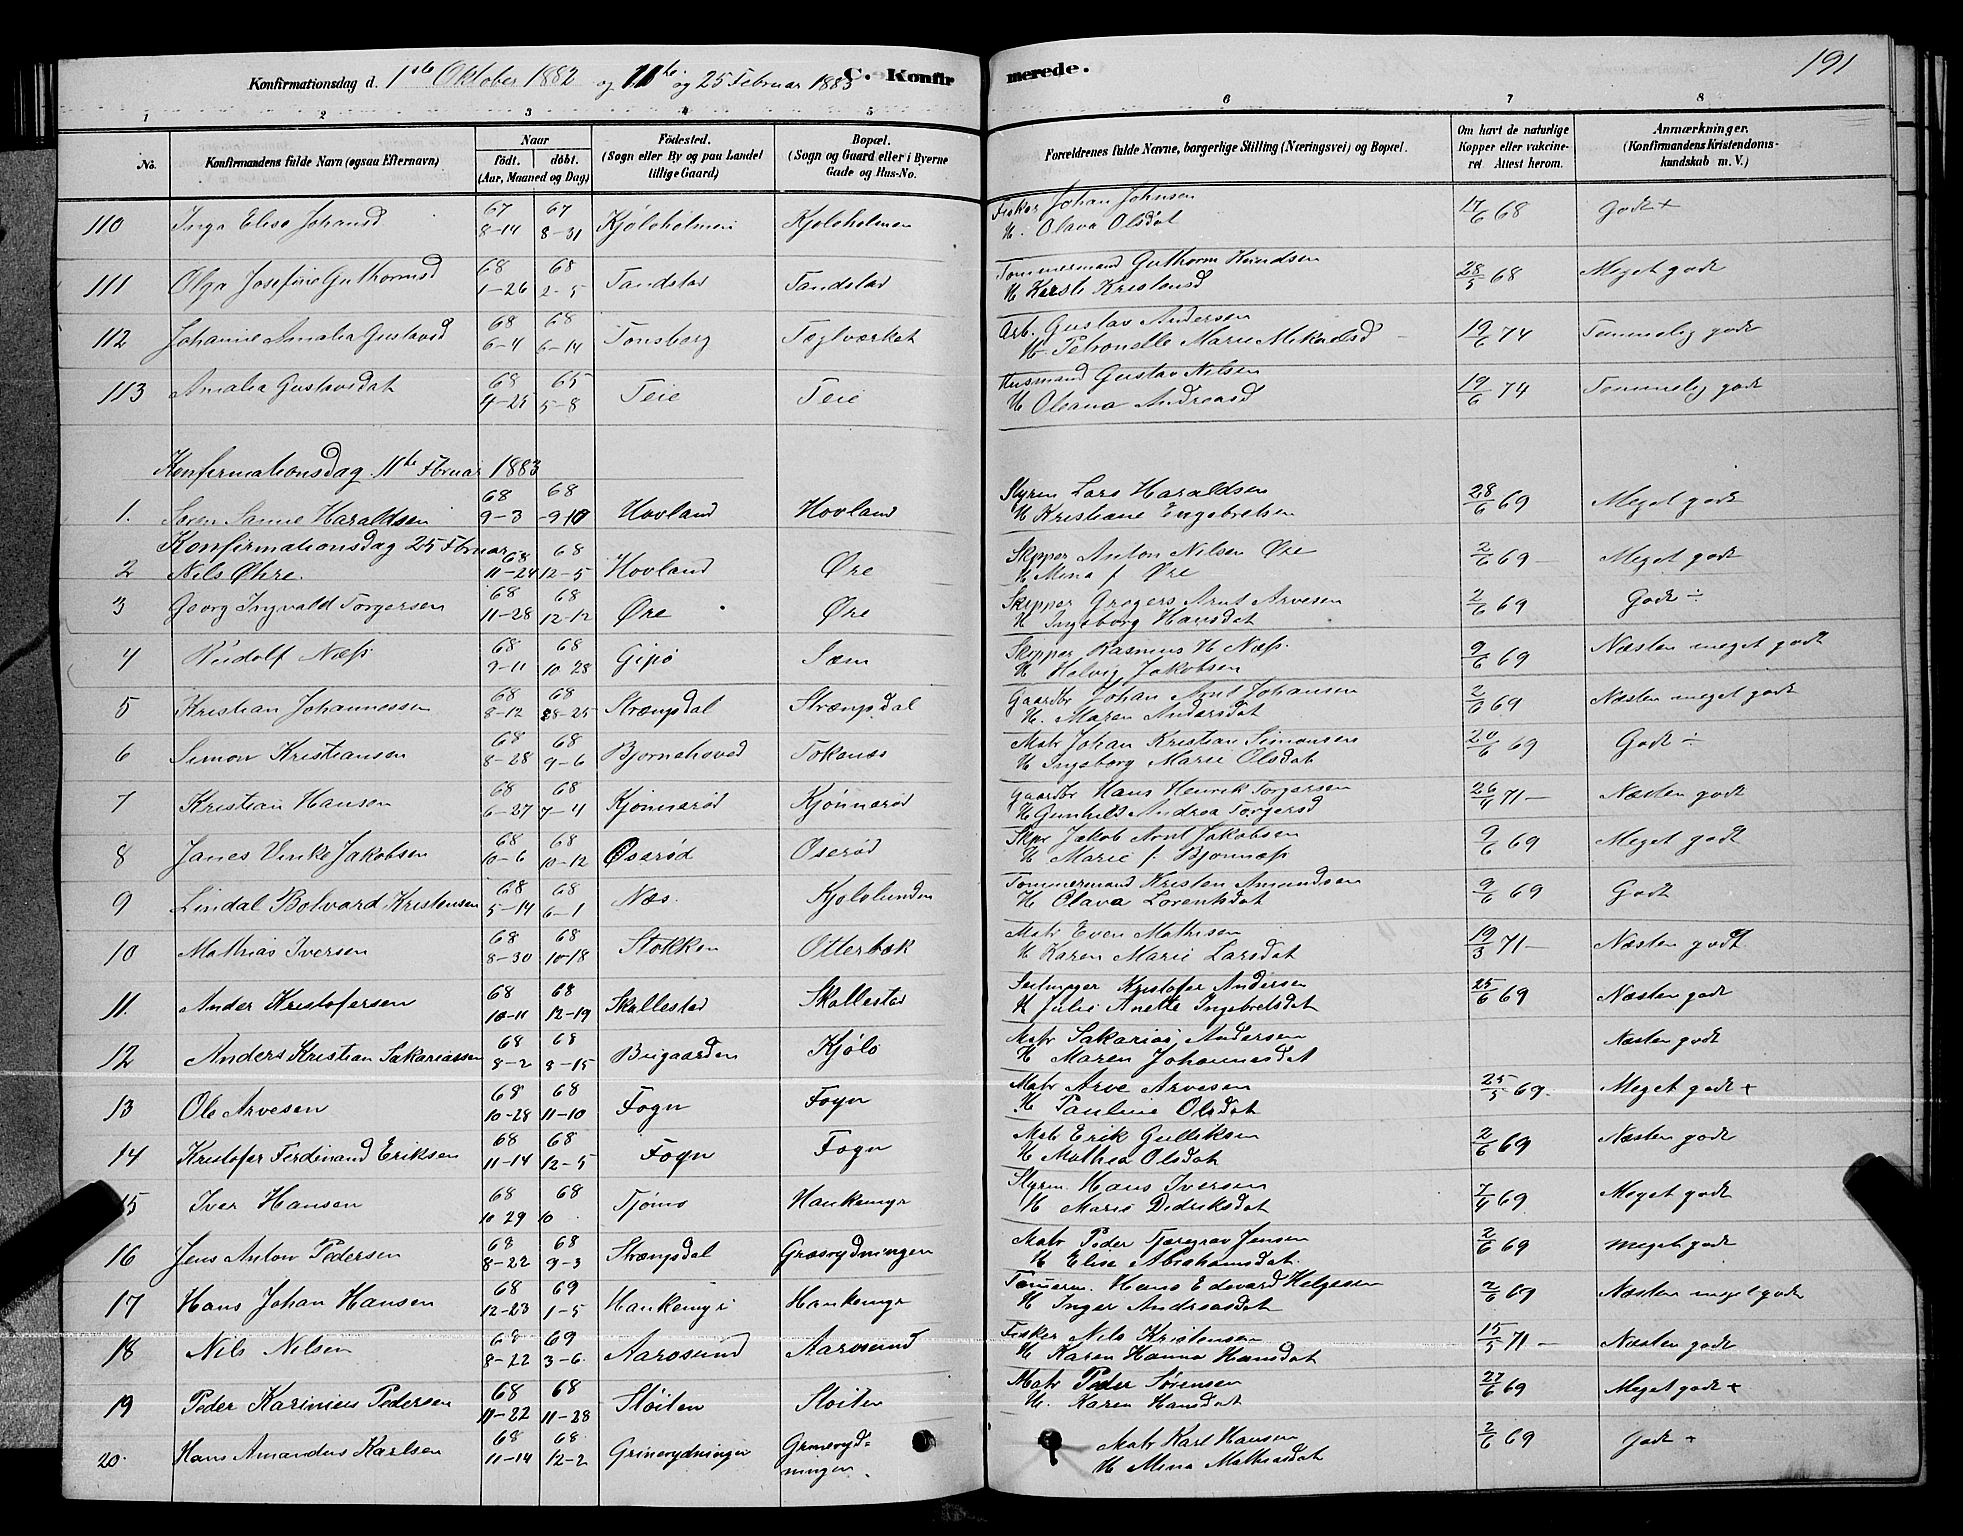 Konfirmationsdag d. 1ste Oktober 1882 og 11te og 25 Februar 1883 C. Konfirmerede. 191
1 2 3 4 5 6 7 8
No. Konfirmandens fulde Navn (ogsaa Efternavn) Naar født. døbt. (Aar, Maaned og Dag) Fødested. (Sogn eller By og paa Landet tillige Gaard) Bopæl. (Sogn og Gaard eller i Byerne Gade og Hus-No. Forældrenes fulde Navne, borgerlige Stilling (Næringsvei) og Bopæl. Om havt de naturlige Kopper eller vakcineret Attest herom. Anmærkninger. (Konfirmandens Kristendomskundskab m. V.)
110 Inga Elise Johansd 67 8-14 67 8-31 Kjøleholmen Kjøleholmen Fisker Johan Johnsen 17/6 68 Godt +
H. Olava Olsdat
111 Olga Josefine Guthormsd 68 1-26 68 2-5 Tandstad Tandstad Tommermand Guthorm 28/5 68 Meget godt
H Kristensd
112 Johanne Amalia Gustavsd 68 6-4 68 6-14 Tønsberg Teglværket Arb. Gustav Andersen 19/6 74 Temmelig godt
H. Petronelle Marie Mikaelsd
113 Amalia Gustavsdat 68 4-25 65 5-8 Teie Teie Husmand Gustav Nilsen 19/6 74 Temmelig godt
H Oleana Andreasd
Konfirmationsdag 11te Fbruar 1883
1. Søren Sanne Haraldsen 68 9-3 68 9-10 Hovland Hovland Styrm Lars Haraldsen 28/6 69 Meget godt
H Kristiane Engebretsen
Konfirmationsdag 25 Fbruar
2 Nils Øhre. 68 11-24 68 12-5 Hovland Øre Skipper Anton Nilsen Øre 2/6 69 - Meget godt
H Mina f Øre
3 Georg Ingvald Torgersen 68 11-28 68 12-12 Øre Øre Skipper Gregers Arnt Arvesen 2/6 69 Godt ÷
H Ingeborg Hansdat
4 Rudolf Næss 68 9-11 68 10 28 Gipø Sæm Skipper Rasmus H Næss. 9/6 69 Næsten meget godt
H Helvig Jakobsen
5 Kristian Johannessen 68 8-12 68 8-25 Strængsdal Strængsdal Gaardbr Johan Arnt Johansen 2/6 69 Næsten meget godt
H. Maren Andersdat
6 Simon Kristiansen 68 8-28 68 9-6 Bjørnehoved Tokenæs Matr Johan Kristian Simonsen 20/6 69 Godt ÷
H Ingeborg Marie Olsdat
7 Kristian Hansen 68 6-27 68 7-4 Kjønnerød Kjønnerød Gaardbr Hans Henrik Torgersen 26/6 71 - Næsten godt
H Gunhild Andrea Torgersd
8 Janes Vinke Jakobsen 68 10-6 68 10-12 Oserød Oserød Skpr Jakob Arnt Jakobsen 9/6 69 Meget godt
H Marie f. Bjønnæss
9 Lindal Bolvard Kristensen 68 5-14 68 6-1 Næs. Kjølelunden Tommermand Kristen Amandsen 9/6 69 Godt
H Olava Lorentsdat
10 Mathias Iversen 68 8-30 68 10-18 Stokken Otterbæk Matr Even Mathisen 19/3 71 - Næsten godt
H Karen Marie Larsdat
11. Ander Kristofersen 68 10-11 68 12-19 Skallestad Skallestad Kristofer Andersen 25/6 69 Næsten godt
H Julie Anette Ingebretsdat
12 Anders Kristian Sakariassen 68 8-2 68 8-15 Kjøle Matr Sakarias Andersen Næsten godt
H Maren Johannesdat
13 Ole Arvesen 68 10-28 68 11-10 Fogn Fogn Matr Arve Arvesen 25/5 69. Meget godt +
H Pauline Olsdat
14 Kristofer Ferdinand Eriksen 68 11-14 68 12-5 Fogn Fogn Mat Erik Gulliksen 2/6 69 Næsten godt
H Mathea Olsdat
15 Iver Hansen 68 10 29 68 10 Tjømø Haukemyr Styrm. Hans Iversen 7/4 69 Meget godt
H Marie Didriksdat
16 Jens Anton Pedersen 68 8-22 68 9-3 Strængsdal Græsrydningen Matr Peder Jensen 2/6 69 Meget godt
H Elise Abrahamsdat.
17 Hans Johan Hansen 68 12-23 69 1-5 Haukemyr Haukemyr Tømerm. Hans Edevard Helgesen 2/6 69 Næsten meget godt
H Inger Andreasdat
18 Nils Nilsen 68 8-22 69 3-6. Aarosund Aarosund Fisker Nils Kristensen 15/5 71 - Næsten godt
H Karen Hanna Hansdat
19 Peder Karinius Pedersen 68 11-22 68 11-28 Støiten Støiten Matr Peder Sørensen 27/6 69 Meget godt +
H. Karen Hansdat
20. Hans Amandus Karlsen 68 11-14 68 12-2 Grinerydningen Grineryd= Matr Karl Hansen 2/6 69 Godt +
ningen. H Mina Mathiasdat